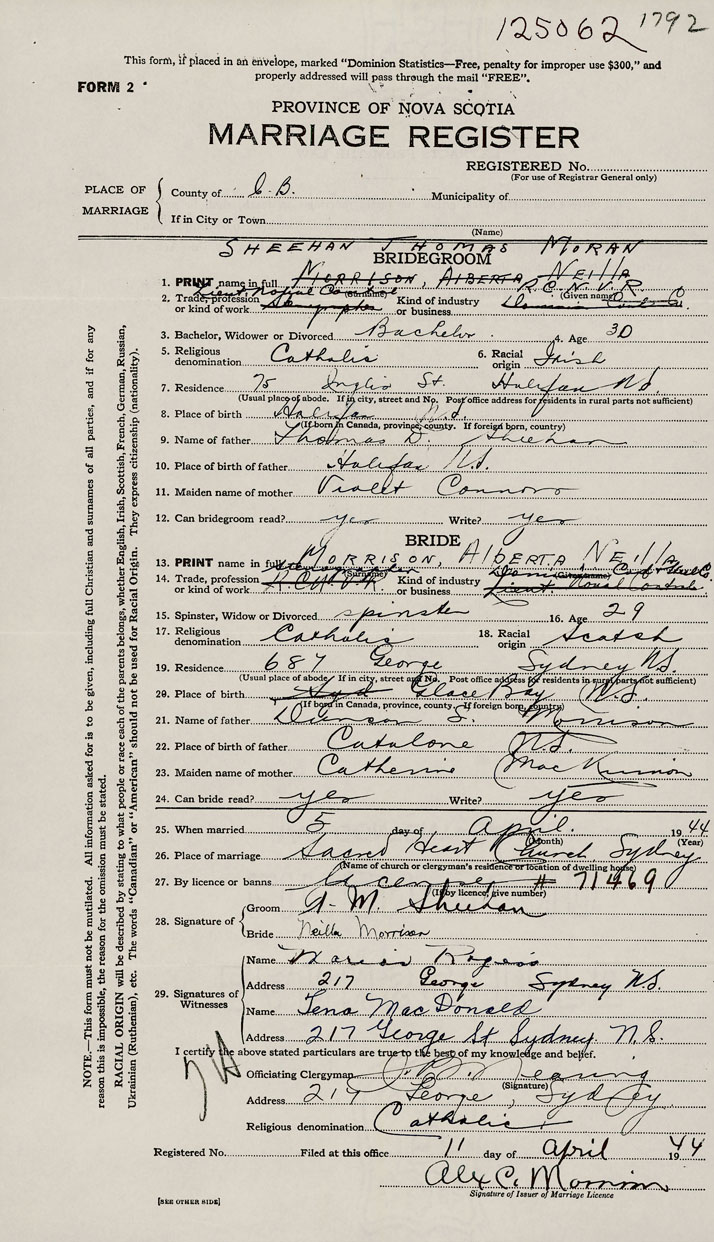 125062 1792
This form, if placed in an envelope, marked "Dominion Statistics—Free, penalty for improper use $300," and
properly addressed will pass through the mail "FREE".
FORM 2
PROVINCE OF NOVA SCOTIA
MARRIAGE REGISTER
REGISTERED No.
(For use of Registrar General only)
PLACE OF MARRIAGE
County of C. B. Municipality of
If in City or Town
(Name)
SHEEHAN THOMAS MORAN
BRIDEGROOM
1. PRINT name in full MORRISON, ALBERTA NEILLA
(Surname) (Given name)
Lieut. Naval Control R.C.N.V.R.
2. Trade, profession or kind of work Stenographer Kind of industry or business Dominion Coal Co.
3. Bachelor, Widower or Divorced Bachelor 4. Age 30
5. Religious denomination Catholic 6. Racial origin Irish
7. Residence 75 Inglis St. Halifax N.S.
(Usual place of abode. If in city, street and No. Post office address for residents in rural parts not sufficient)
8. Place of birth Halifax N.S.
(If born in Canada, province, county. If foreign born, country)
9. Name of father Thomas D. Sheehan
10. Place of birth of father Halifax N.S.
11. Maiden name of mother Violet Connors
12. Can bridegroom read? yes Write? yes
BRIDE
13. PRINT name in full MORRISON, ALBERTA NEILLA
(Surname) (Given name)
14. Trade, profession or kind of work R.C.N.V.R. Kind of industry or business Lieut. Naval Control
15. Spinster, Widow or Divorced spinster 16. Age 29
17. Religious denomination Catholic 18. Racial origin Scotch
19. Residence 687 George Sydney N.S.
(Usual place of abode. If in city, street and No. Post office address for residents in rural parts not sufficient)
20. Place of birth Syd Glace Bay N.S.
(If born in Canada, province, county. If foreign born, country)
21. Name of father Duncan S. Morrison
22. Place of birth of father Catalone N.S.
23. Maiden name of mother Catherine MacKinnon
24. Can bride read? yes Write? yes
25. When married 5 day of April. 1944
(Month) (Year)
26. Place of marriage Sacred Heart Church Sydney
(Name of church or clergyman's residence or location of dwelling house)
27. By licence or banns licence # 71469
(If by licence, give number)
28. Signature of
Groom T. M. Sheehan
Bride Neilla Morrison
29. Signatures of Witnesses
Name Marion Rogers
Address 217 George Sydney N.S.
Name Tena MacDonald
Address 217 George St Sydney N.S.
I certify the above stated particulars are true to the best of my knowledge and belief.
Officiating Clergyman
(Signature)
Address 217 George, Sydney
Religious denomination Catholic
Registered No. Filed at this office 11 day of April 1944
Alex C. Morrison
Signature of Issuer of Marriage Licence
[SEE OTHER SIDE]
NOTE.—This form must not be mutilated. All information asked for is to be given, including full Christian and surnames of all parties, and if for any
reason this is impossible, the reason for the omission must be stated.
RACIAL ORIGIN will be described by stating to what people or race each of the parents belongs, whether English, Irish, Scottish, French, German, Russian,
Ukrainian (Ruthenian), etc. The words "Canadian" or "American" should not be used for Racial Origin. They express citizenship (nationality).